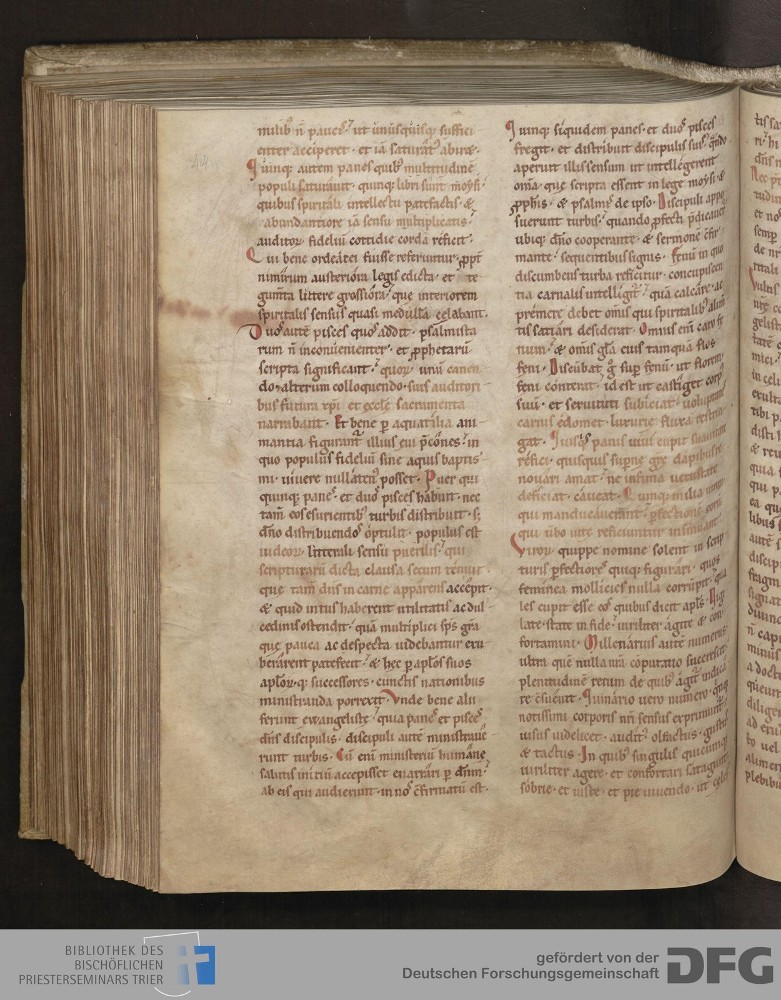 milib; n̄ panes. ut unusquisq; suffici
enter acciperet. et iā saturat' abiret.
Quinq; autem panes quib; multitudinē
populi saturauit. quinq; libri sunt moysi.
quibus spiritali intellectu patefactis. &
abundantiore iā sensu multiplicatis.
auditor; fidelium cottidie corda reficit.
Qui bene ordeacei fuisse referuntur. ꝓpt̄
nimirum austeriora legis edicta. et te
gumta littere grossiora. que interiorem
spiritalis sensus quasi medullā celabant.
Duos autē pisces quos addit. psalmista
rum n̄ inconuenienter. et ꝓphetarū
scripta significant. quor; unū canen
do. alterum colloquendo. suis auditori
bus futura xp̄i et eccl̄e sacramenta
narrabant. Et bene p aquatilia ani
mantia figurant̄ illius eui p̄cones. in
quo populus fidelium sine aquis baptis
mi. uiuere nullaten; posset. Puer qui
quinq; panes. et duos pisces habuit. nec
tam̄ eos esurientib; turbis distribuit. s;
dn̄o distribuendos optulit. populus est
iudeor; litterali sensu puerilis. qui
scripturarū dicta clausa secum tenuit.
que tam̄ dn̄s in carne apparens accepit.
& quid intus haberent utilitatis ac dul
cedinis ostendit. quā multiplici sp̄s gr̄a
que pauca ac despecta uidebantur exu
berarent patefecit. & hec p apl̄os suos
apl̄or; q; successores. cunctis nationibus
ministranda porrexit. Vnde bene alii
ferunt ewangeliste. quia panes et pisces
dn̄s discipulis. discipuli autē ministraue
runt turbis. Cū eni ministeriū humane
salutis initiū accepisset enarrari p dn̄m.
ab eis qui audierunt. in nos c̄firmatū est.
Quinq; siquidem panes. et duos pisces
fregit. et distribuit discipulis suis. qn̄do
aperuit illis sensum ut intellegerent
om̄ia. que scripta essent in lege moysi. &
ꝓphis. & psalmis de ipso. Discipuli appo
suerunt turbis. quando ꝓfecti p̄dicauer̄
ubiq; dn̄o cooperante. & sermone c̄fir
mante. sequentibus signis. Fenū in quo
discumbens turba reficitur. concupiscen
tia carnalis intelligit̄. quā calcare. ac
premere debet omis qui spiritalib; alim̄
tis satiari desiderat. Omnis eni caro fe
num. & omis gl̄a eius tamquā flos
feni. Discūbat g° sup fenū. ut florem
feni conterat. id est ut castiget corp;
suū. et seruituti subiciat. uoluptates
carnis edomet. luxurie fluxa restrin
gat. Quisq's panis uiui cupit suauitate
refici. quisquis supne gr̄e dapibus re
nouari amat. ne infima uetustate
deficiat. caueat. Quinq; milia uirorum
qui manducauerant. ꝑfectionē eorū
qui ūbo uite reficiuntur insinuant.
Viror; quippe nomine solent in scrip
turis ꝑfectiores quiq; figurari. quos
feminea mollicies nulla corrupit. qua
les cupit esse eos quibus dicit apl̄s. Vigi
late. state in fide. uiriliter agite & con
fortamini. Millenarius autē numerus
ultra quē nulla nr̄a cōputatio succrescit.
plenitudinē rerum de quib; agit̄ indica
re c̄sueuit. Quinario uero numero. quinq;
notissimi corporis nr̄i sensus exprimunt̄.
uisus uidelicet. auditus. olfactus. gustus
& tactus. In quib; singulis quicumq;
uiriliter agere. et confortari satagunt.
sobrie. et iuste. et pie uiuendo. ut celes
BIBLIOTHEK DES
BISCHÖFLICHEN
PRIESTERSEMINARS TRIER
gefördert von der
Deutschen Forschungsgemeinschaft
DFG